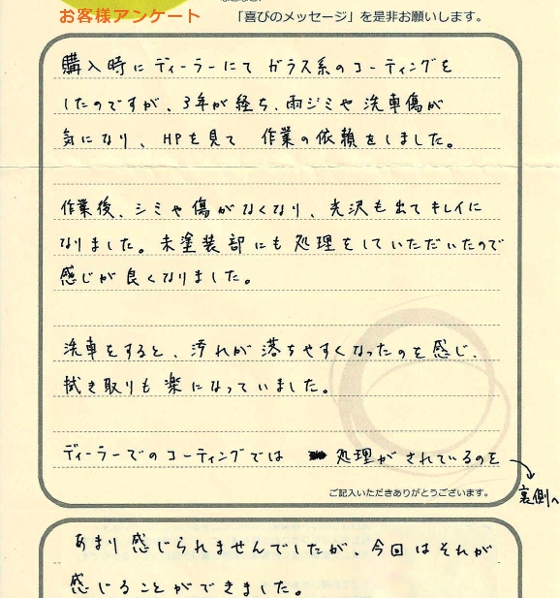 お客様アンケート
「喜びのメッセージ」を是非お願いします。
購入時にディーラーにて ガラス系のコーティングを
したのですが、3年が経ち、雨ジミや 洗車傷が
気になり、HPを見て 作業の依頼をしました。
作業後、シミや傷がなくなり、光沢も出てキレイに
なりました。未塗装部にも処理をしていただいたので
感じが良くなりました。
洗車をすると、汚れが落ちやすくなったのを感じ、
拭き取りも楽になっていました。
ディーラーでのコーティングでは 処理がされているのを
裏側へ
ご記入いただきありがとうございます。
あまり感じられませんでしたが、今回はそれが
感じることができました。